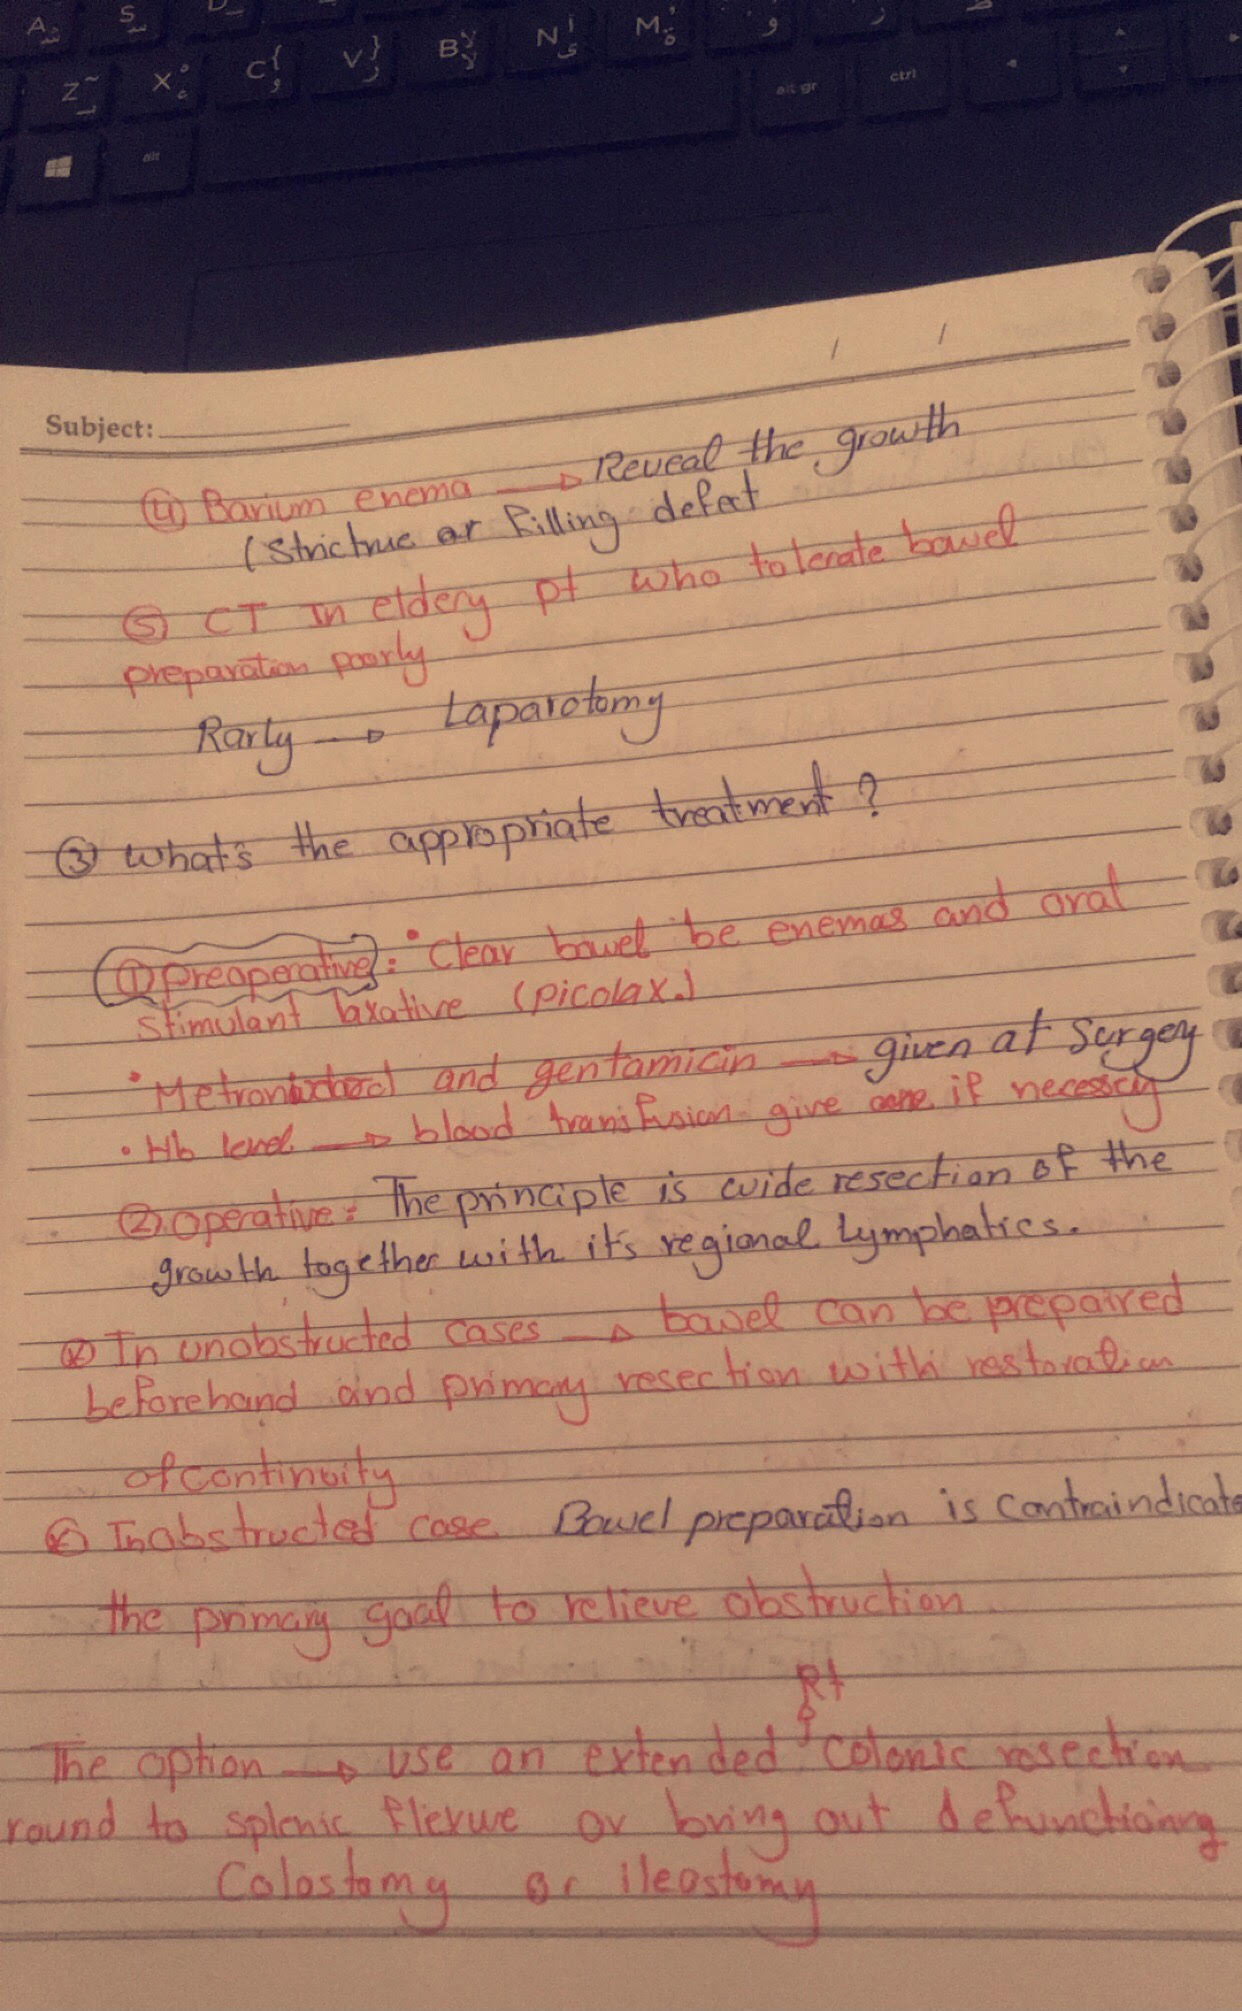 A
S
D
Z
X
C {
V }
B
N
M
alt gr
ctrl
alt
Subject:
/ /
④ Barium enema → Reveal the growth
(strictrue or filling defect
⑤ CT in eldery pt who tolerate bowel
preparation poorly
Rarly → Laparotomy
③ what's the appropriate treatment ?
① preoperative : • Clear bowel be enemas and oral
stimulant laxative (picolax.)
• and gentamicin → given at surgey
• Hb level → blood transfusion give if necessry
② operative : The principle is wide resection of the
growth together with it's regional lymphatics.
In unobstructed cases → bowel can be prepaired
beforehand and primary resection with restoration
of continuity
In obstructed case Bowel preparation is contraindicate
the primary goal to relieve obstruction
Rt
The option → use an extended colonic resection
round to splenic flexure or bring out defunctioning
Colostomy or ileostomy